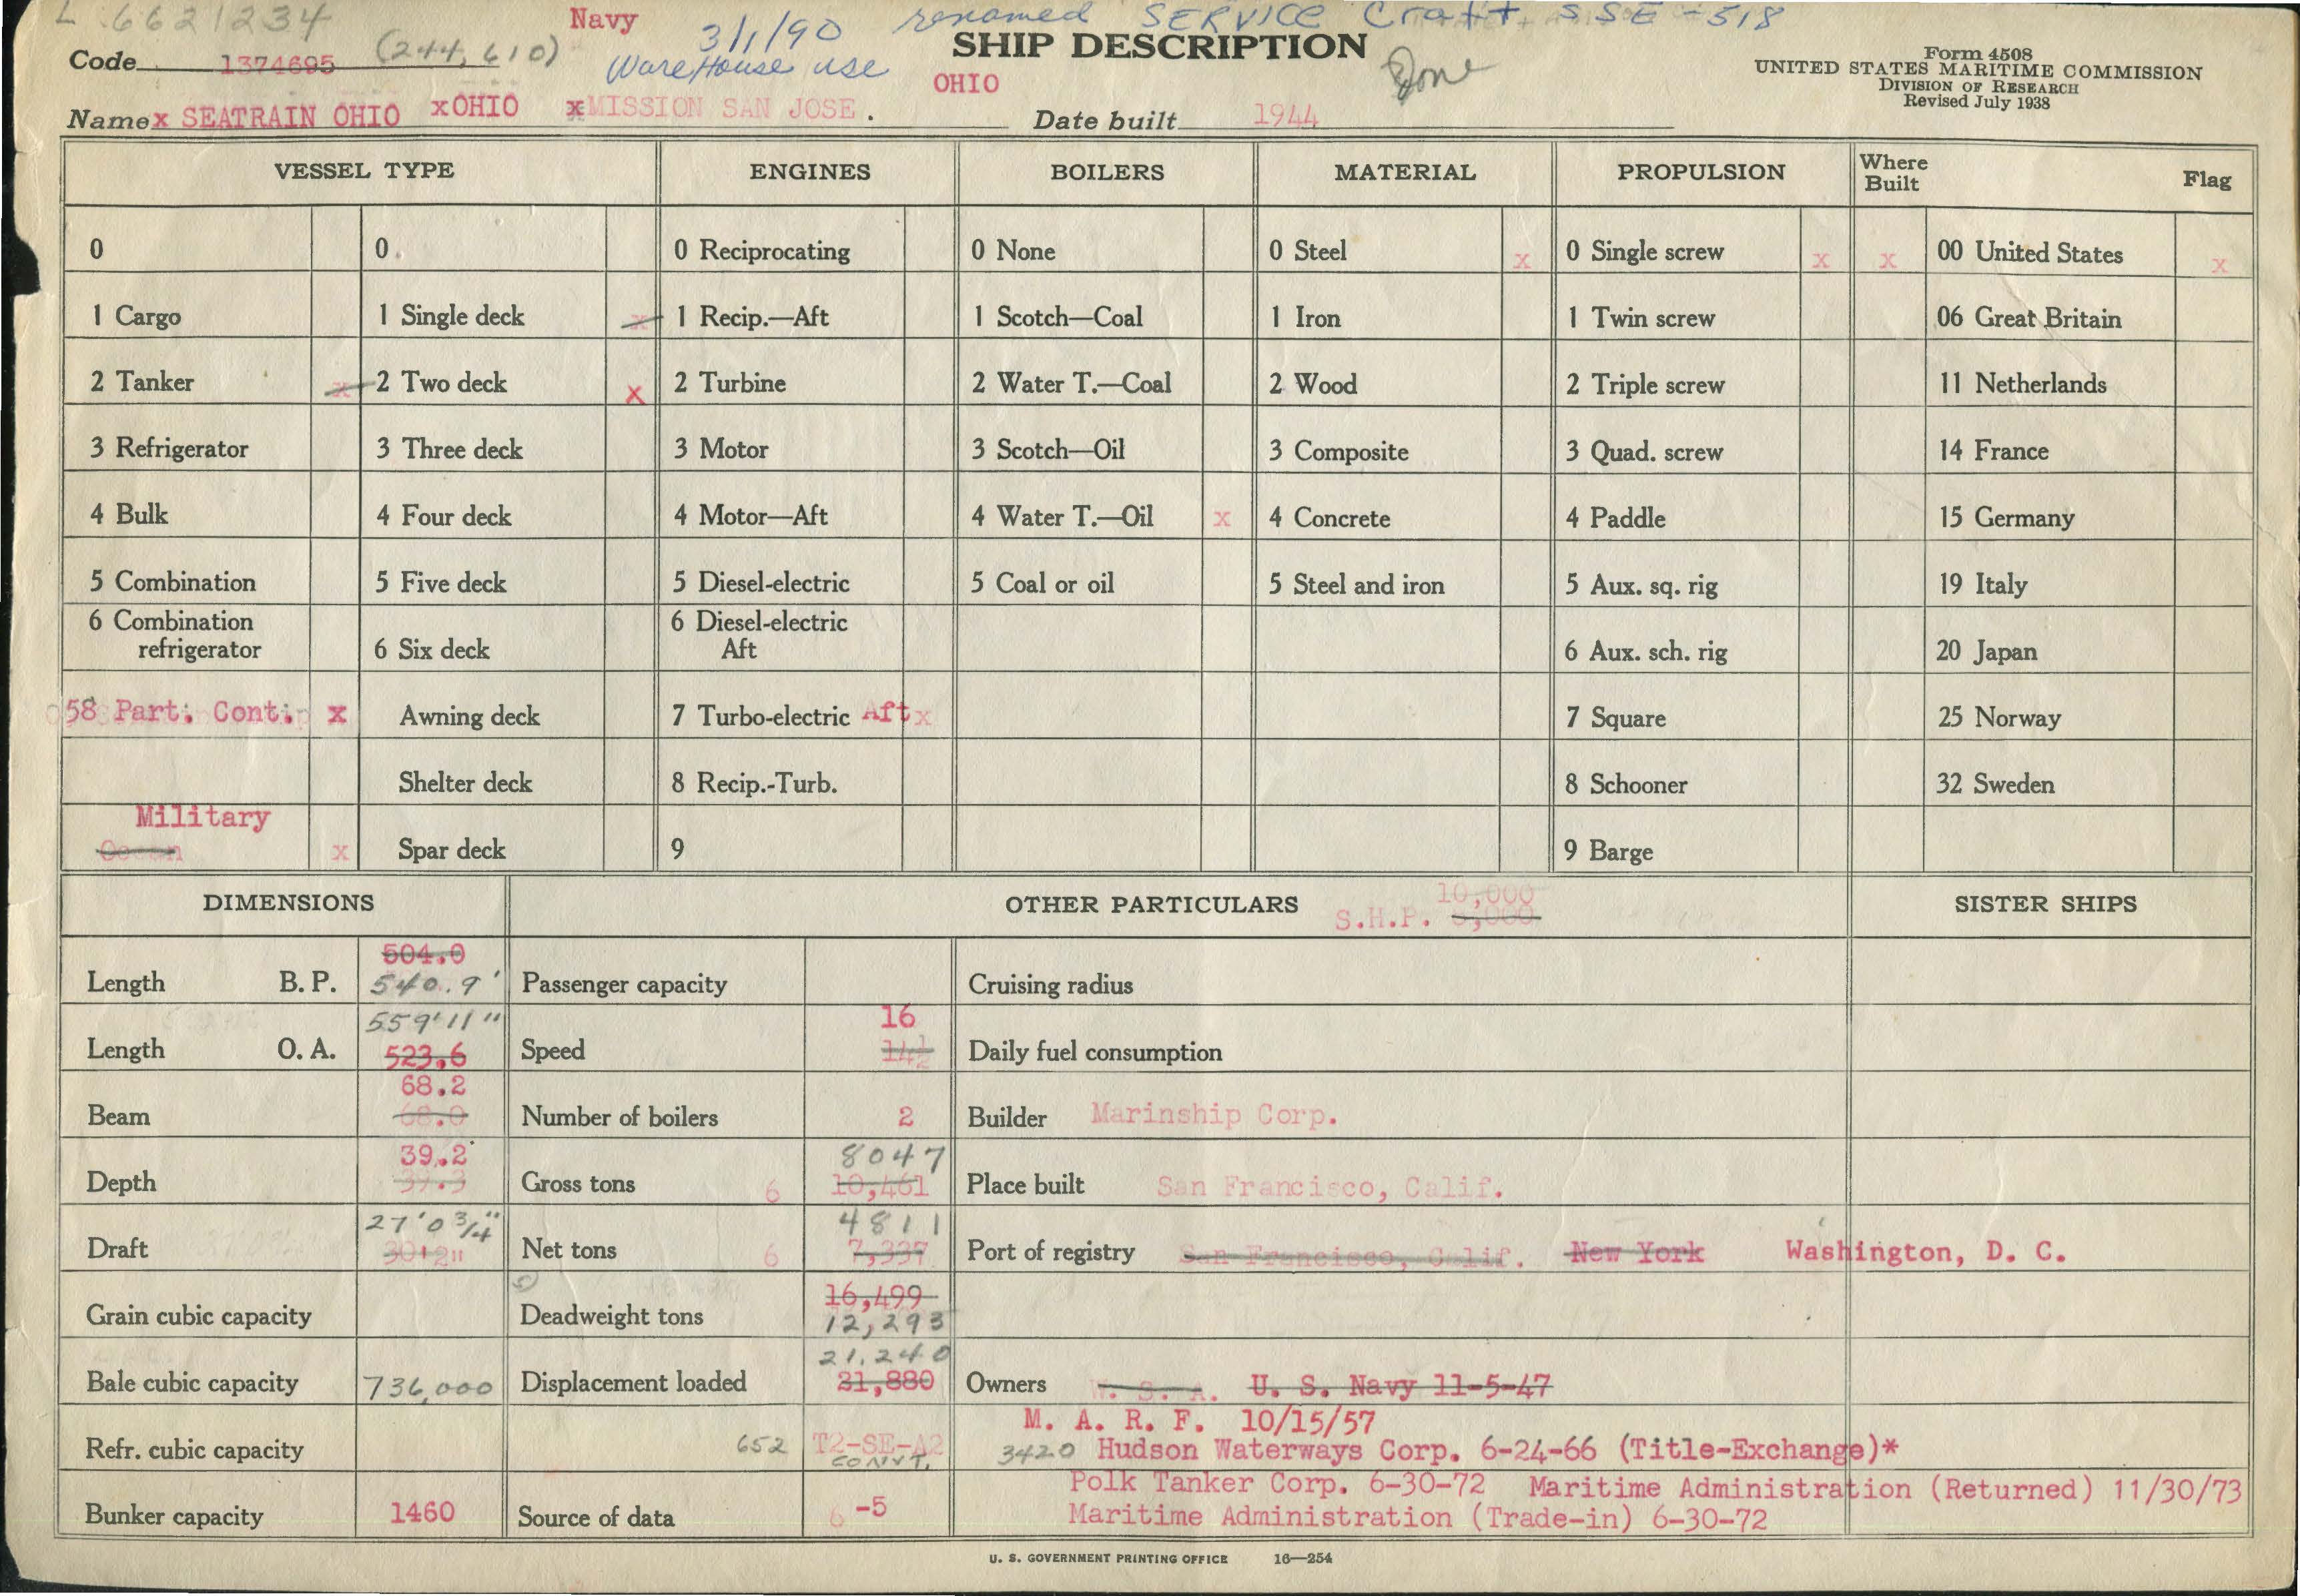 L 6621234 Navy 3/1/90 renamed SERVICE Craft SSE-518
Code 1374695 (244,610) WareHouse use SHIP DESCRIPTION Done
Form 4508
UNITED STATES MARITIME COMMISSION
DIVISION OF RESEARCH
Revised July 1938
OHIO
Name x SEATRAIN OHIO xOHIO xMISSION SAN JOSE . Date built 1944
VESSEL TYPE ENGINES BOILERS MATERIAL PROPULSION Where Built Flag
0 0 0 Reciprocating 0 None 0 Steel x 0 Single screw x x 00 United States x
1 Cargo 1 Single deck x 1 Recip.—Aft 1 Scotch—Coal 1 Iron 1 Twin screw 06 Great Britain
2 Tanker x 2 Two deck x 2 Turbine 2 Water T.—Coal 2 Wood 2 Triple screw 11 Netherlands
3 Refrigerator 3 Three deck 3 Motor 3 Scotch—Oil 3 Composite 3 Quad. screw 14 France
4 Bulk 4 Four deck 4 Motor—Aft 4 Water T.—Oil x 4 Concrete 4 Paddle 15 Germany
5 Combination 5 Five deck 5 Diesel-electric 5 Coal or oil 5 Steel and iron 5 Aux. sq. rig 19 Italy
6 Combination refrigerator 6 Six deck 6 Diesel-electric Aft 6 Aux. sch. rig 20 Japan
58 Part. Cont. x Awning deck 7 Turbo-electric Aft x 7 Square 25 Norway
Shelter deck 8 Recip.-Turb. 8 Schooner 32 Sweden
Military
Ocean x Spar deck 9 9 Barge
DIMENSIONS OTHER PARTICULARS S.H.P. 10,000 SISTER SHIPS
504.0
Length B. P. 540.9' Passenger capacity Cruising radius
559'11" 16
Length O. A. 523.6 Speed 14½ Daily fuel consumption
68.2
Beam 68.0 Number of boilers 2 Builder Marinship Corp.
39.2 8047
Depth 39.3 Gross tons 6 10,461 Place built San Francisco, Calif.
27'0¾" 4811
Draft 30'2" Net tons 6 7,337 Port of registry San Francisco, Calif. New York Washington, D. C.
16,499
Grain cubic capacity Deadweight tons 12,293
21,240
Bale cubic capacity 736,000 Displacement loaded 21,880 Owners W. S. A. U. S. Navy 11-5-47
M. A. R. F. 10/15/57
Refr. cubic capacity 652 T2-SE-A2 CONVT. 3420 Hudson Waterways Corp. 6-24-66 (Title-Exchange)*
Polk Tanker Corp. 6-30-72 Maritime Administration (Returned) 11/30/73
Bunker capacity 1460 Source of data 6 -5 Maritime Administration (Trade-in) 6-30-72
U. S. GOVERNMENT PRINTING OFFICE 16—254